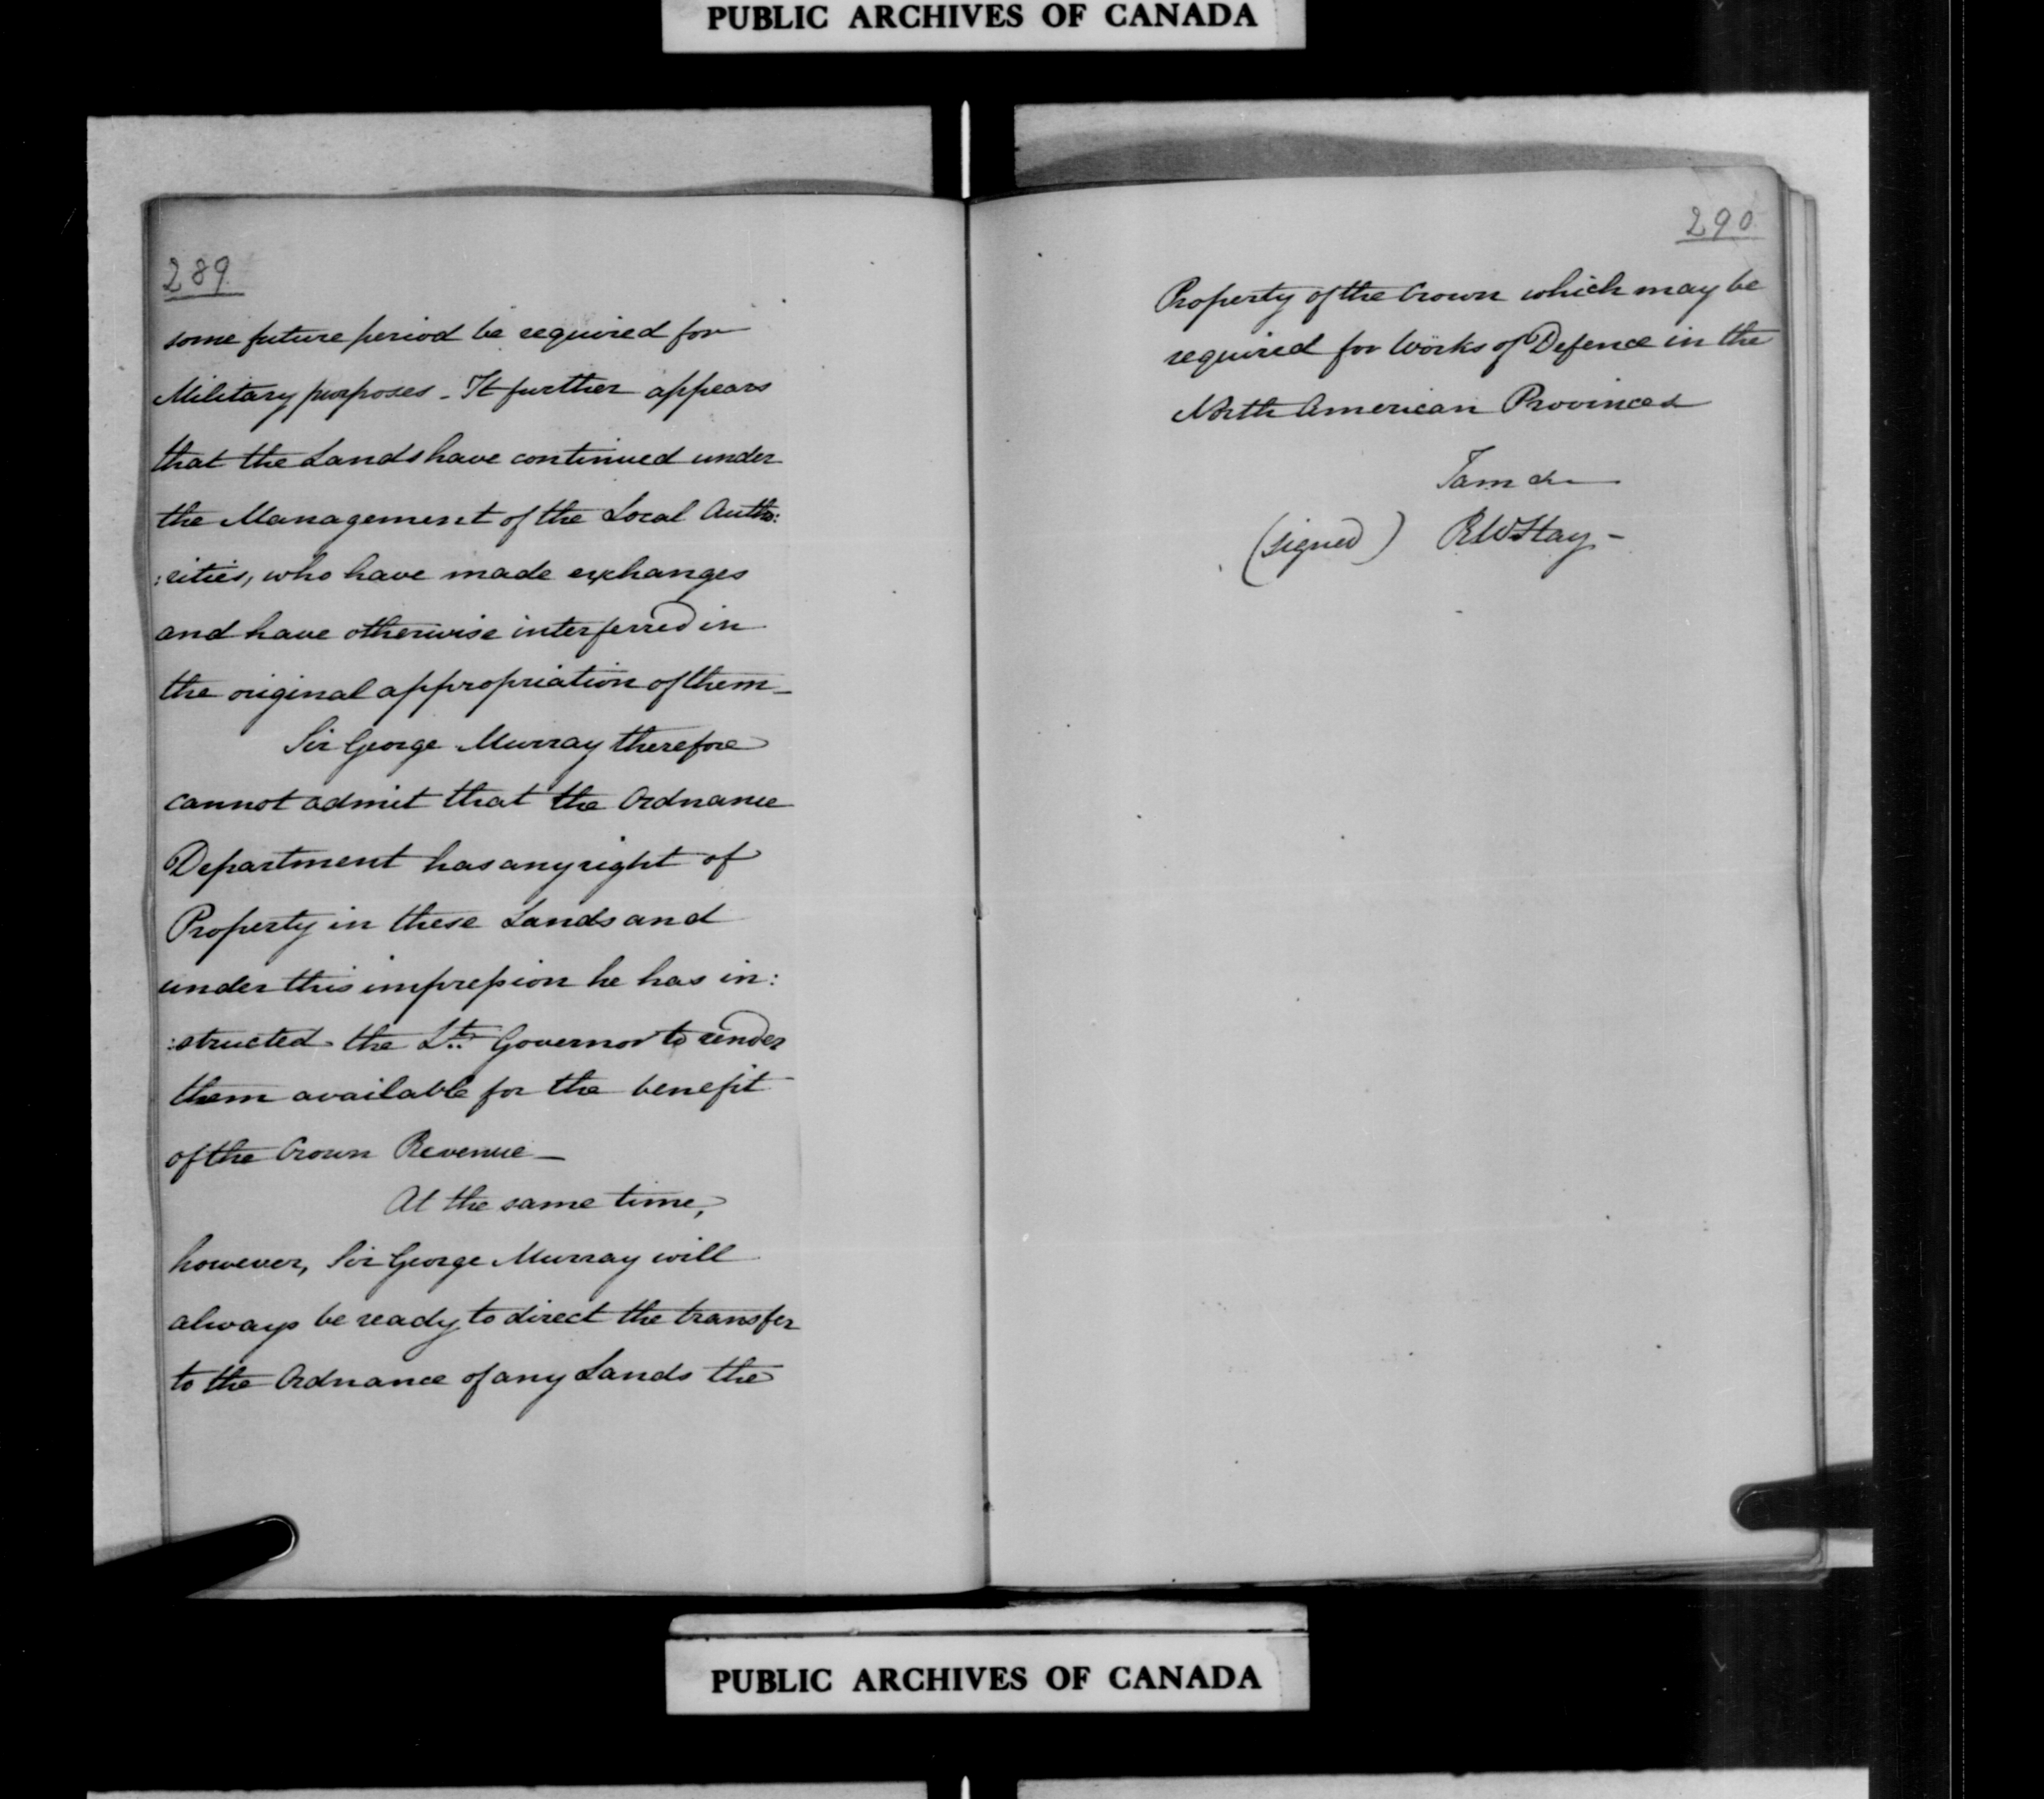 PUBLIC ARCHIVES OF CANADA
289.
some future period be required for
Military purposes - It further appears
that the Lands have continued under
the Management of the Local Autho:
:rities, who have made exchanges
and have otherwise interferred in
the original appropriation of them -
Sir George Murray therefore
cannot admit that the Ordnance
Department has any right of
Property in these Lands and
under this impression he has in:
:structed the Lt. Governor to render
them available for the benefit
of the Crown Revenue -
At the same time,
however, Sir George Murray will
always be ready to direct the transfer
to the Ordnance of any Lands the
290
Property of the Crown which may be
required for Works of Defence in the
North American Provinces
I am &c
(signed) R W Hay -
PUBLIC ARCHIVES OF CANADA